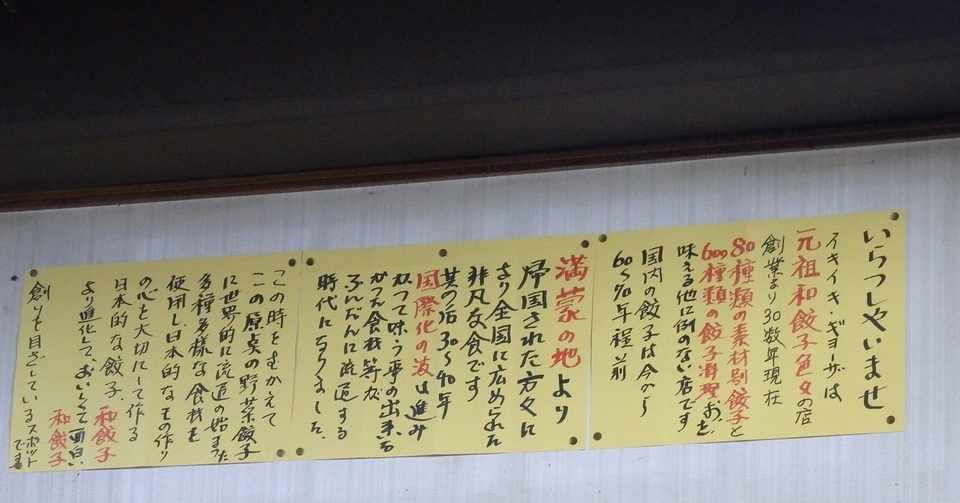 いらっしゃいませ
イキイキ・ギョーザは
元祖和餃子色々の店
創業より30数年現在
80種類の素材別餃子と
600種類の餃子料理があじ
味える他に例のない店です
国内の餃子は今から
60〜70年程前
満蒙の地より
帰国された方々に
より全国に広められた
非凡な食です
其の后30〜40年
国際化の波は進み
かつて味う事の出来な
かつた食材等が
ふんだんに流通する
時代になりました。
この時をむかえて
この原点の野菜餃子
に世界的に流通の始まった
多種多様な食材を
使用し、日本的なもの作り
の心を大切にして作る
日本的な餃子、和餃子
より進化して、おいしくて面白い和餃子
創りを目ざしているスポットです